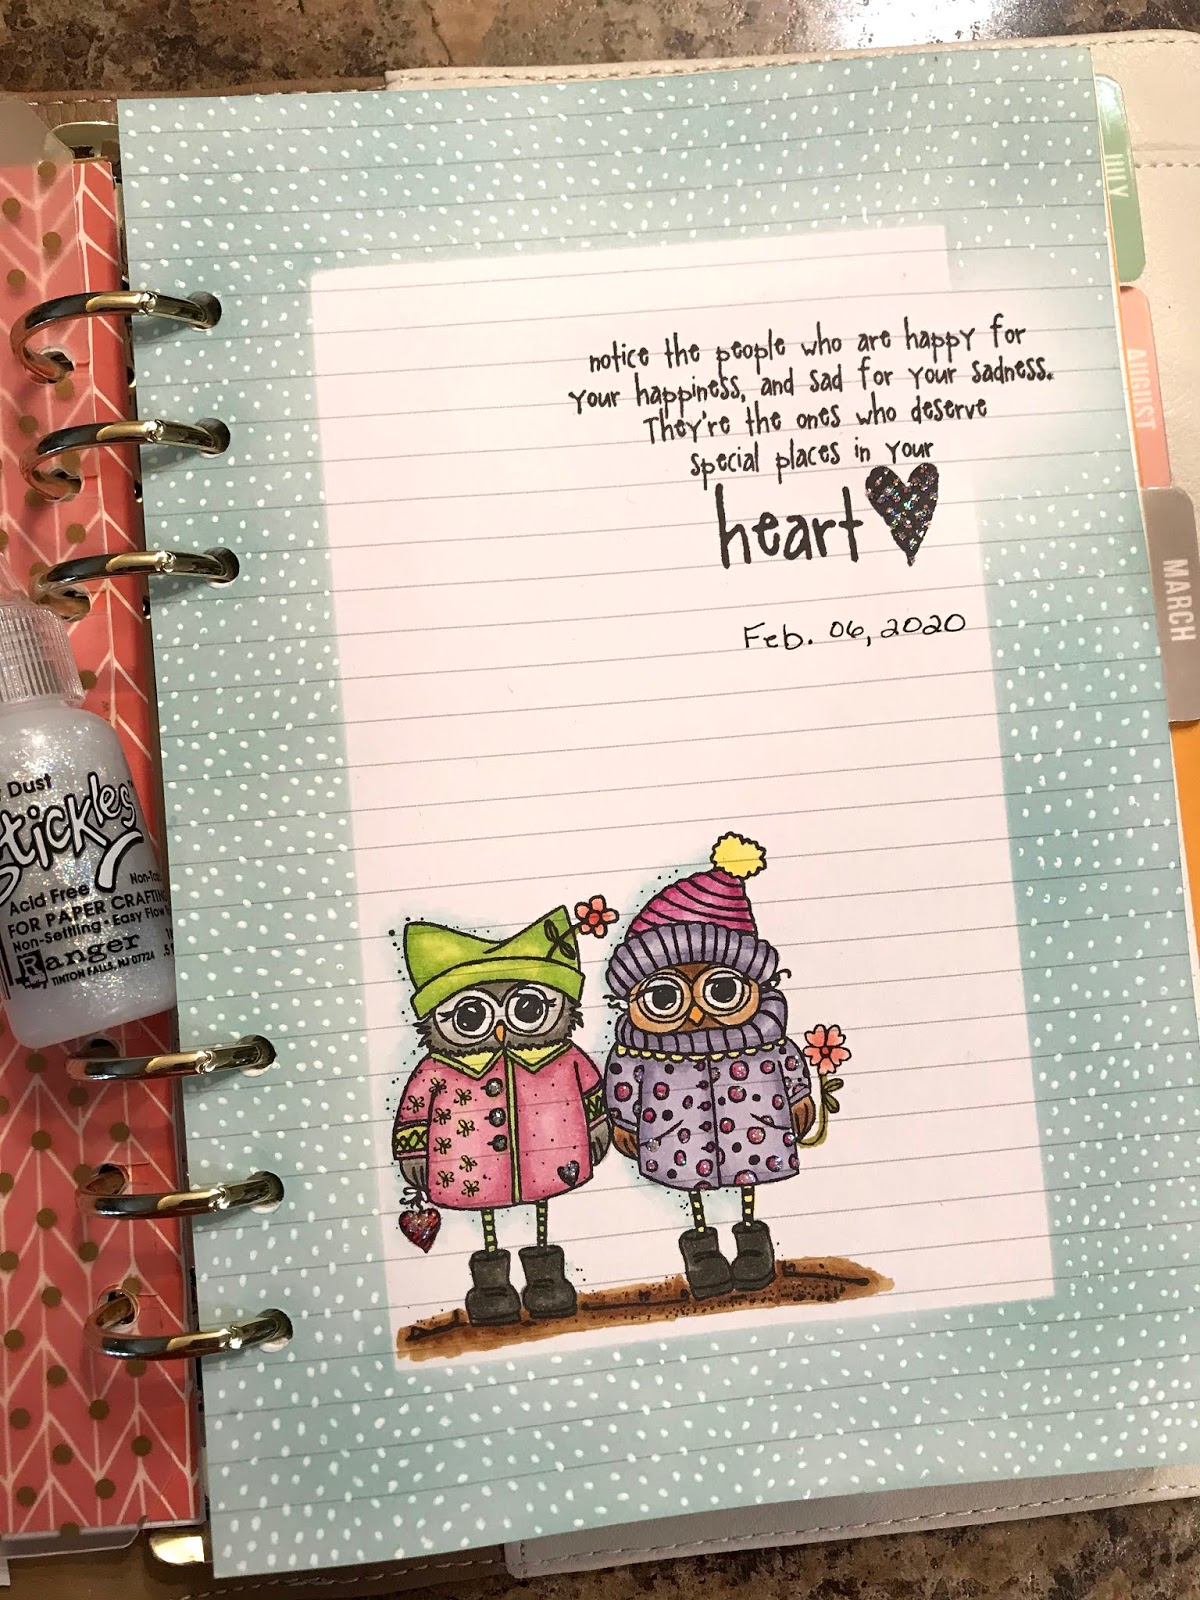 notice the people who are happy for
your happiness, and sad for your sadness.
They're the ones who deserve
special places in your
heart
Feb. 06, 2020
JULY
AUGUST
MARCH
Dust
Stickles™
Acid Free
FOR PAPER CRAFTING
Non-Settling • Easy Flow
Ranger
TINTON FALLS, NJ 07724